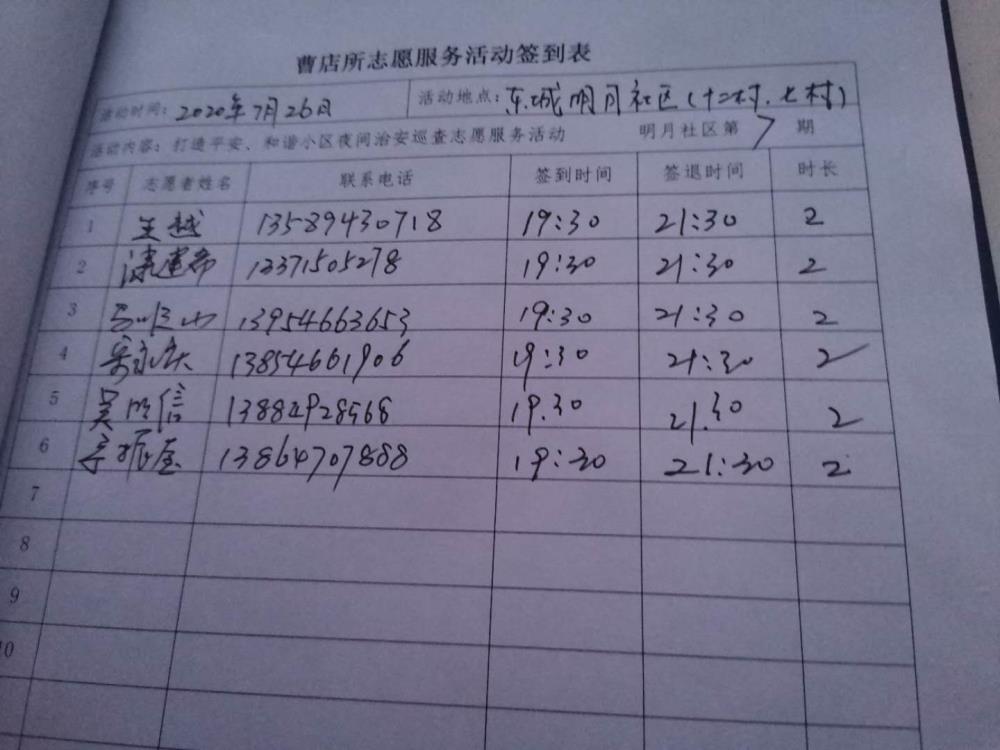 曹店所志愿服务活动签到表
活动时间：2020年7月26日 活动地点：东城明月社区（十二村、七村）
活动内容：打造平安、和谐小区夜间治安巡查志愿服务活动 明月社区第7期
序号 志愿者姓名 联系电话 签到时间 签退时间 时长
1 王越 13589430718 19:30 21:30 2
2 13371505278 19:30 21:30 2
3 13954663653 19:30 21:30 2
4 13854661906 19:30 21:30 2
5 吴明信 13884928568 19.30 21.30 2
6 13864707888 19:30 21:30 2
7
8
9
10